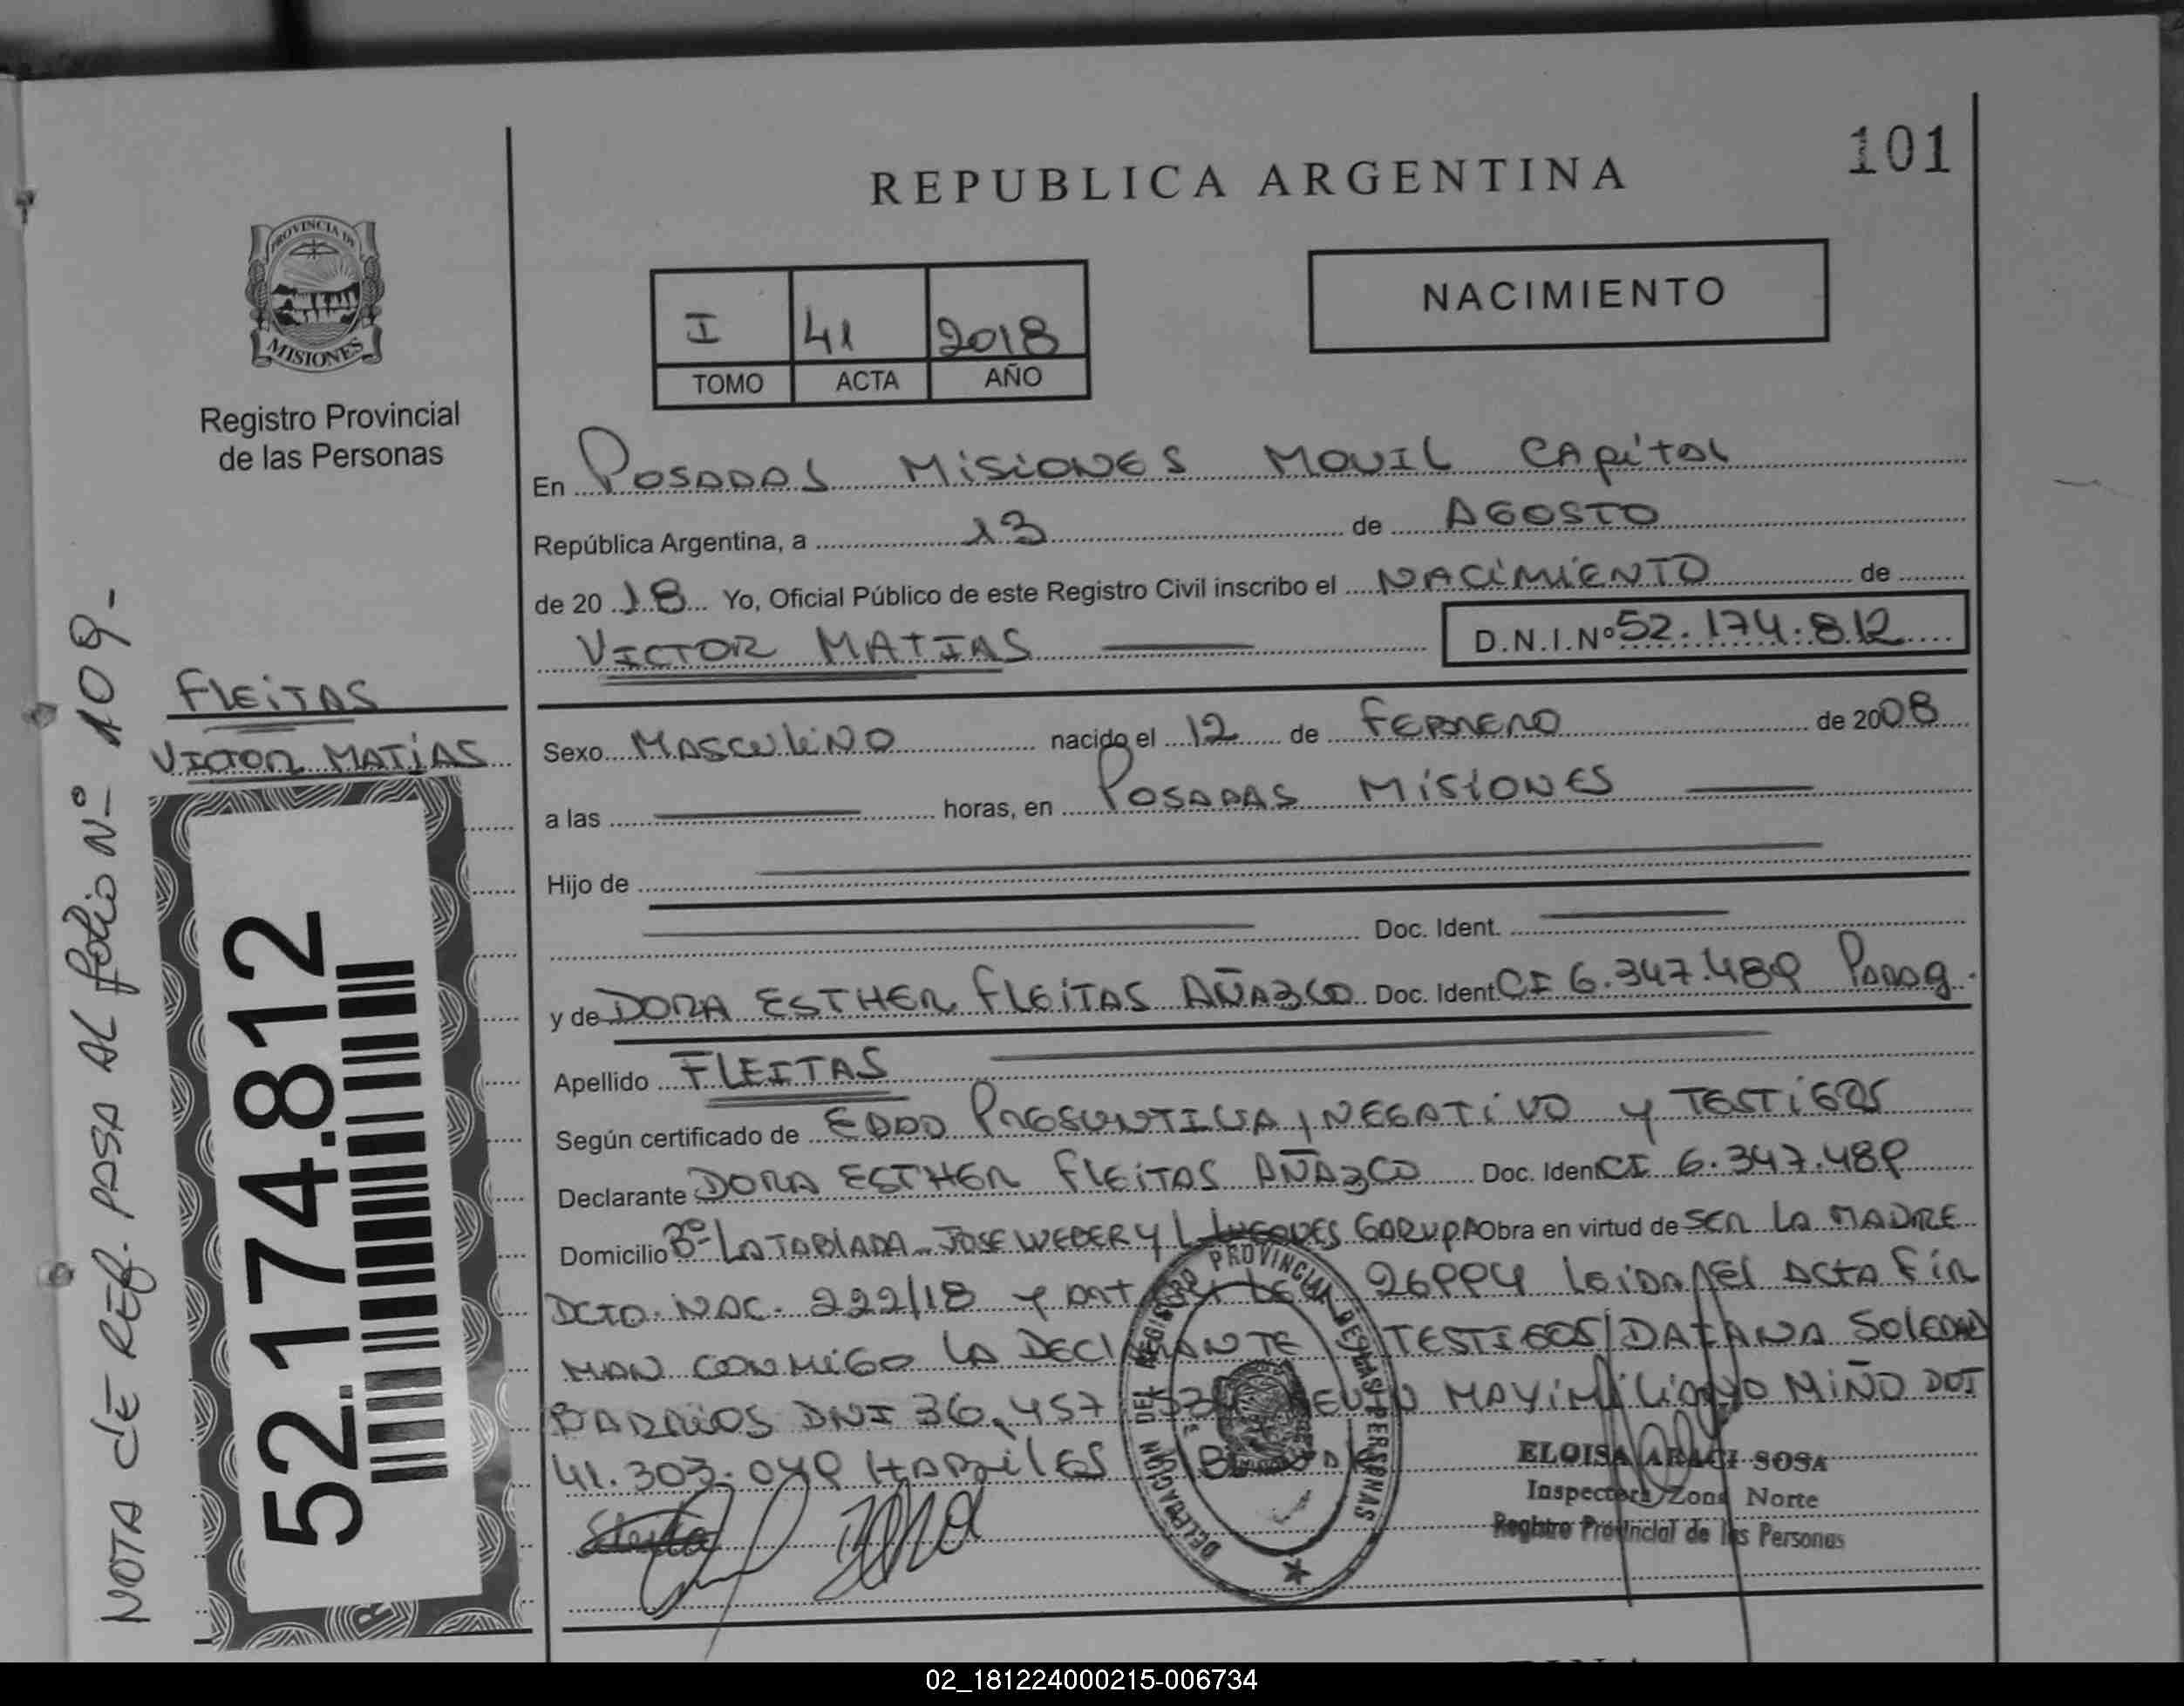 101
REPUBLICA ARGENTINA
PROVINCIA DE
MISIONES
Registro Provincial
de las Personas
NACIMIENTO
I 41 2018
TOMO ACTA AÑO
En POSADAS MISIONES MOVIL CAPITAL
República Argentina, a 13 de AGOSTO
de 20 18 Yo, Oficial Público de este Registro Civil inscribo el NACIMIENTO de
VICTOR MATIAS D.N.I.Nº 52.174.812
FLEITAS
VICTOR MATIAS
52.174.812
NOTA dE REF. PASA AL folio Nº 109-
Sexo MASCULINO nacido el 12 de FEBRERO de 2008
a las horas, en POSADAS MISIONES
Hijo de
Doc. Ident.
y de DORA ESTHER FLEITAS AÑAZCO Doc. Ident CI 6.347.489 Parag.
Apellido FLEITAS
Según certificado de EDAD PRESUNTIVA, NEGATIVO y TESTIGOS
Declarante DORA ESTHER FLEITAS AÑAZCO Doc. Iden CI 6.347.489
Domicilio Bº LA TABLADA - JOSE WEBER Y L LUGONES GARUPA Obra en virtud de SER LA MADRE
DCTO. NAC. 222/18 y Art LEY 26994 LEIDA EL ACTA FIR
MAN CONMIGO LA DECLARANTE TESTIGOS/ DAIANA SOLEDAD
BARRIOS DNI 36.457 KEVIN MAXIMILIANO MIÑO DNI
41.303.049 HABILES
DELEGACION DEL REGISTRO PROVINCIAL DE LAS PERSONAS
ELOISA ARACI SOSA
Inspectora Zona Norte
Registro Provincial de las Personas
02_181224000215-006734